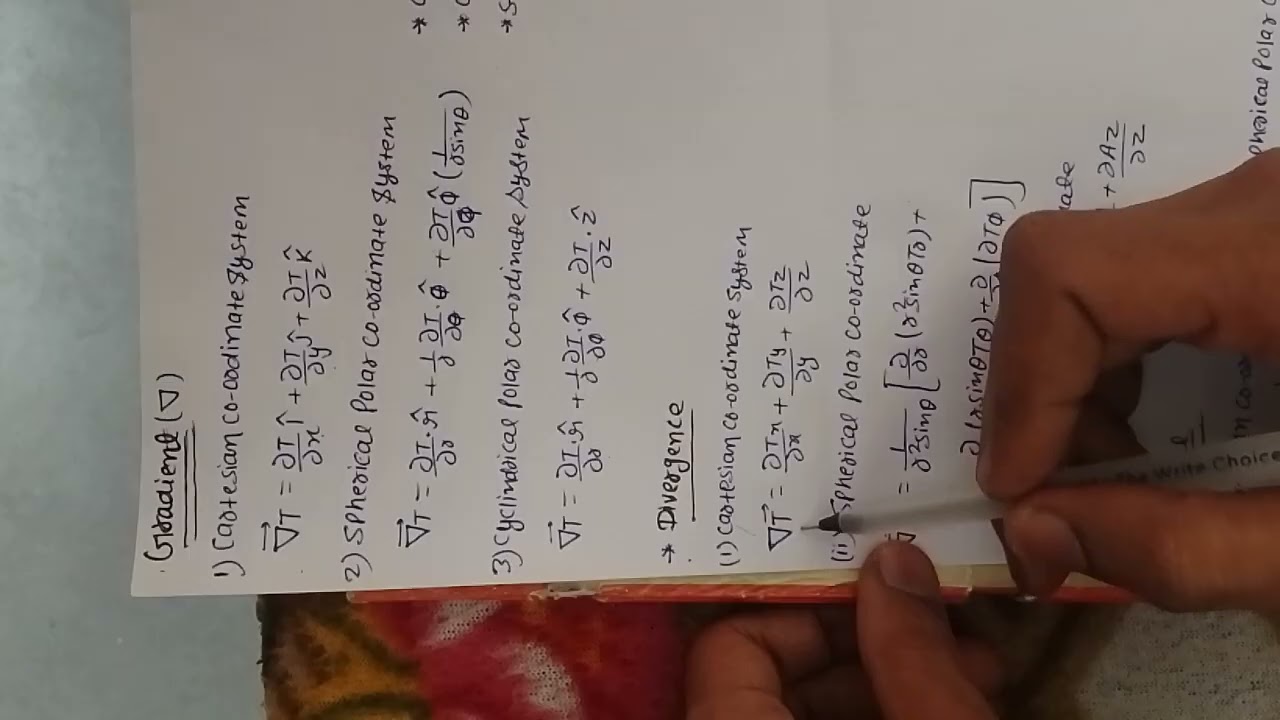 Gradient (∇)
1) Cartesian co-oodinate System
∇T = ∂T/∂x î + ∂T/∂y ĵ + ∂T/∂z k̂
2) Spherical Polar co-ordinate System
∇T = ∂T/∂r · r̂ + 1/r ∂T/∂θ · θ̂ + ∂T/∂ϕ ϕ̂ (1/r sinθ)
3) Cylindrical Polar co-ordinate System
∇T = ∂T/∂r · r̂ + 1/r ∂T/∂ϕ · ϕ̂ + ∂T/∂z · ẑ
* Divergence
(i) Cartesian co-ordinate System
∇T = ∂Tx/∂x + ∂Ty/∂y + ∂Tz/∂z
(ii) Spherical Polar co-ordinate
= 1/r² sinθ [∂/∂r (r² sinθ Tr) +
∂ (r sinθ Tθ) + ∂ (rTϕ)]
+ ∂Az/∂z
Write Choice